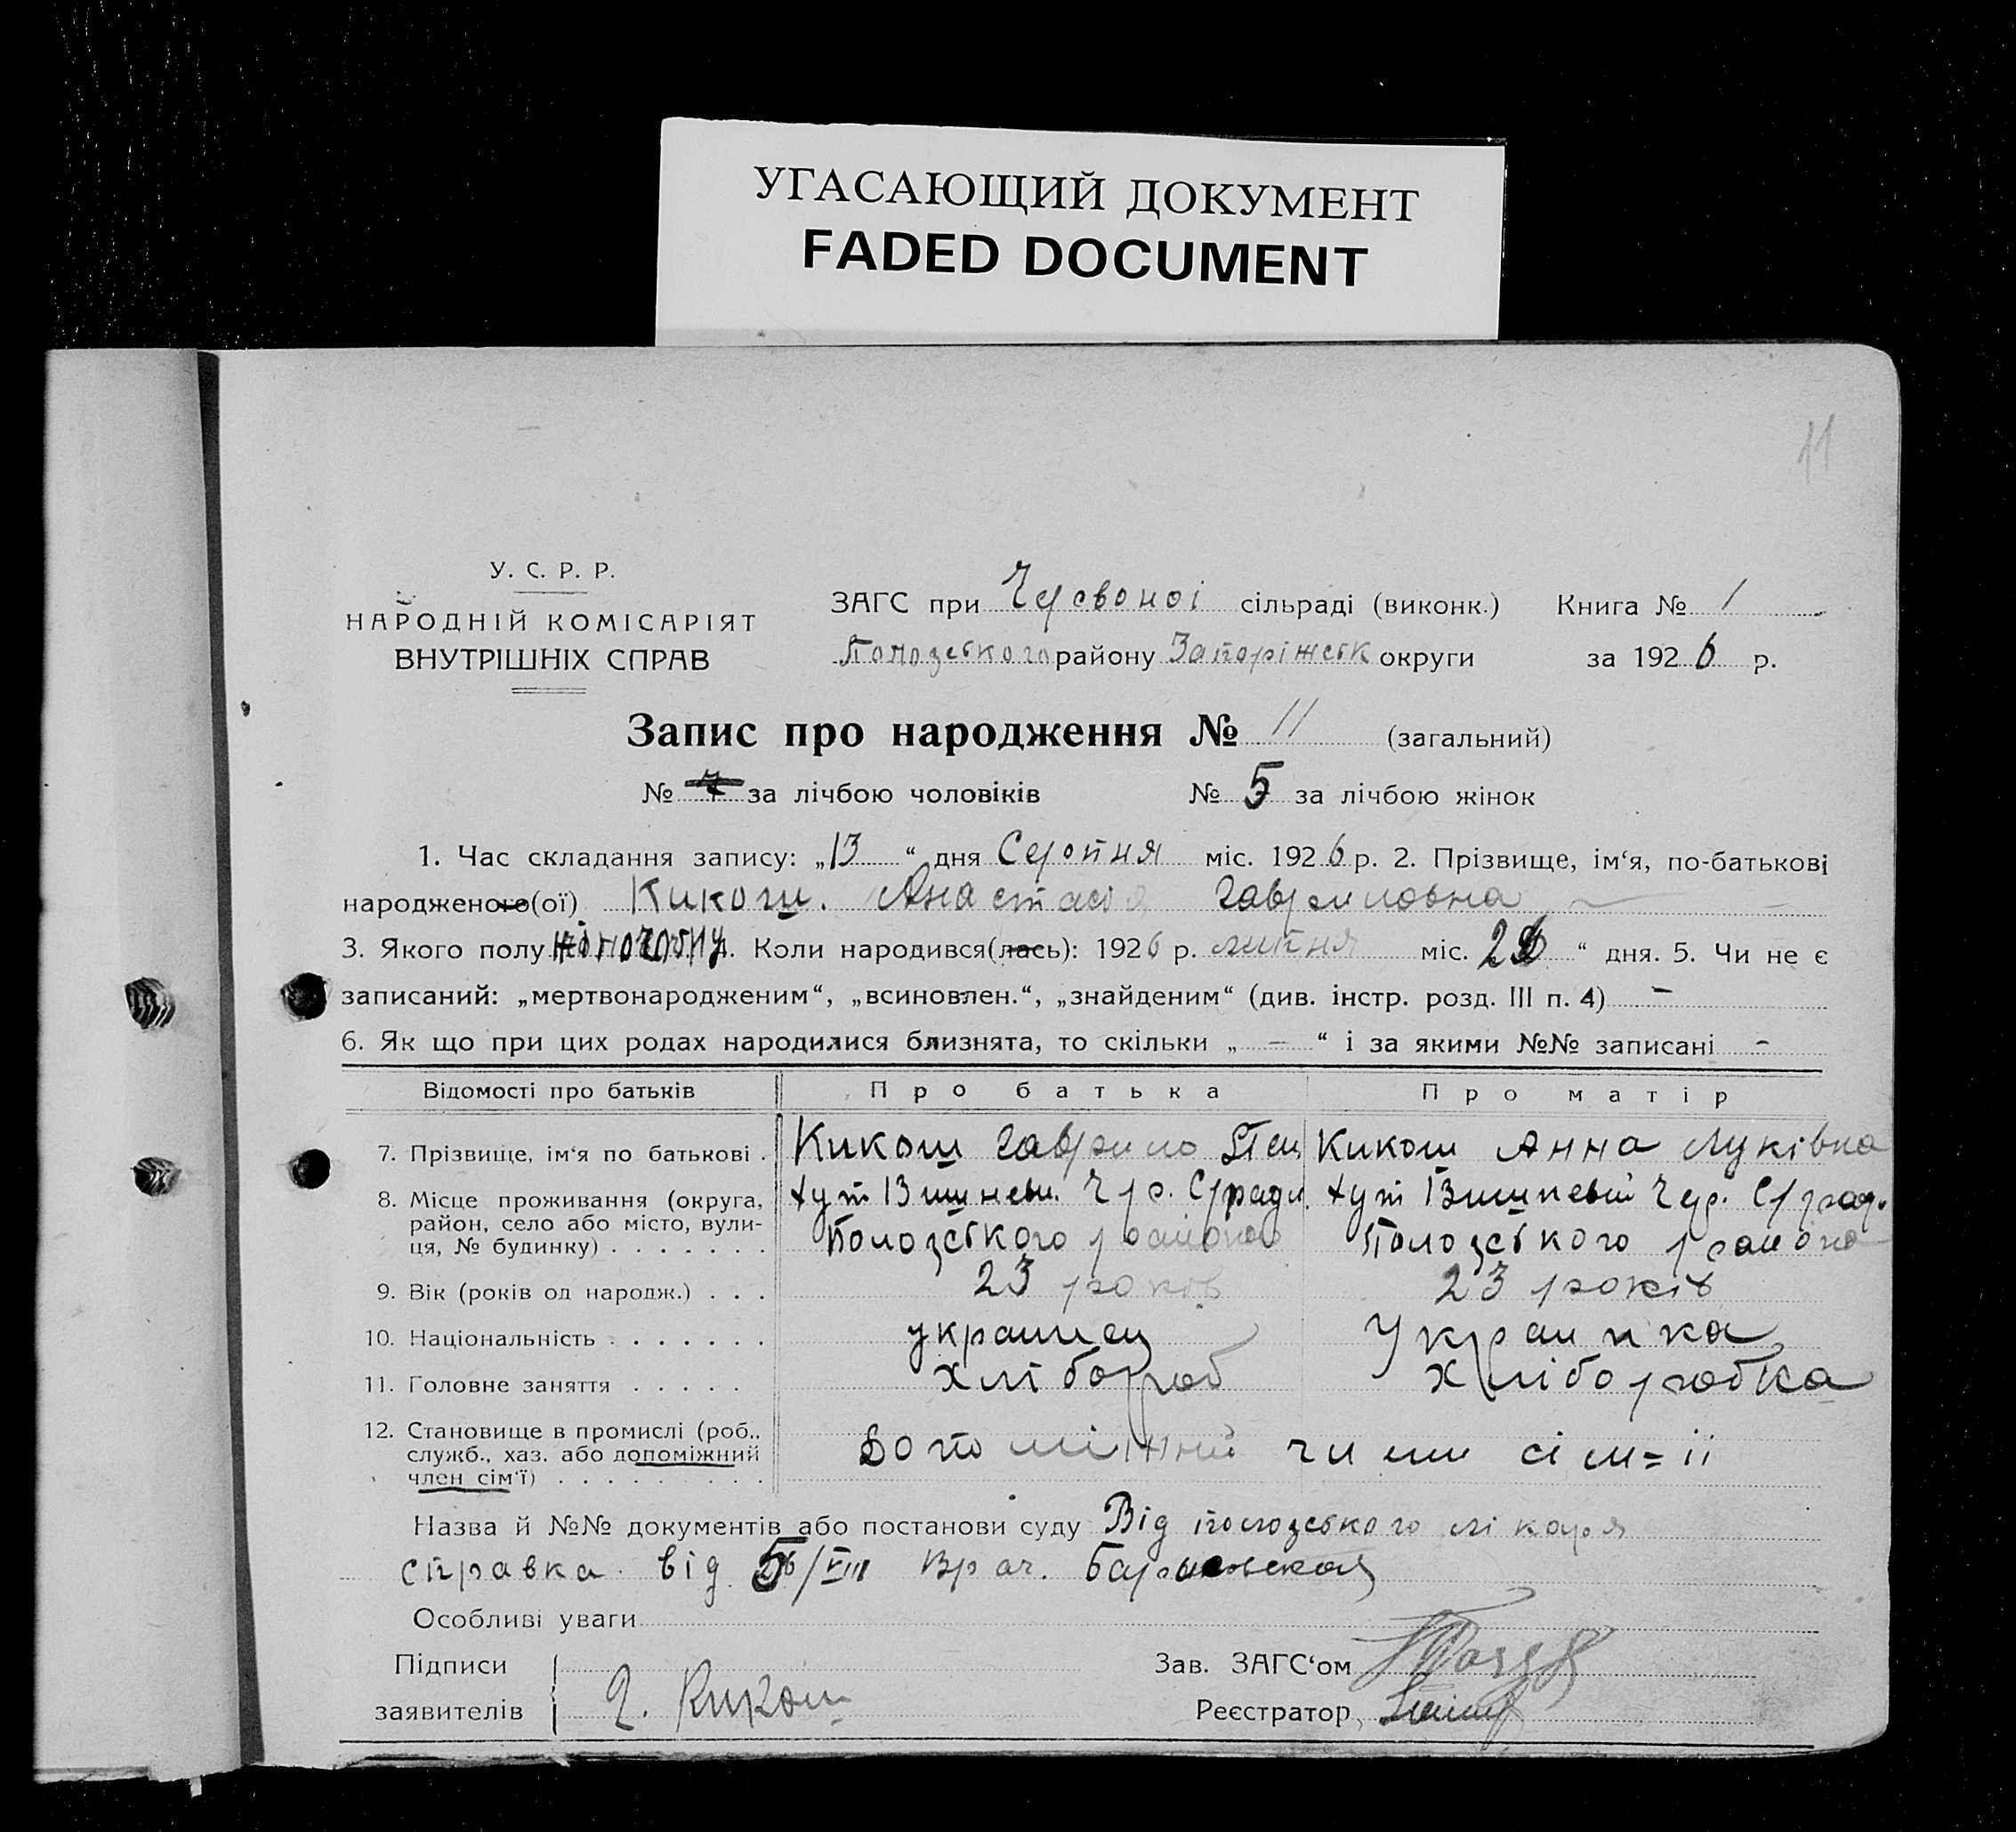 УГАСАЮЩИЙ ДОКУМЕНТ
FADED DOCUMENT
11
У. С. Р. Р.
НАРОДНІЙ КОМІСАРІЯТ
ВНУТРІШНІХ СПРАВ
ЗАГС при Червоної сільраді (виконк.) Книга № 1
Пологського району Запоріжськ округи за 1926 р.
Запис про народження № 11 (загальний)
№ 7 за лічбою чоловіків № 5 за лічбою жінок
1. Час складання запису: „13“ дня Серпня міс. 1926 р. 2. Прізвище, ім‘я, по-батькові
народженого(ої) Кикош. Анастасія Гавриловна
3. Якого полу 4. Коли народився(лась): 1926 р. липня міс. “ дня. 5. Чи не є
записаний: „мертвонародженим“, „всиновлен.“, „знайденим“ (див. інстр. розд. III п. 4) –
6. Як що при цих родах народилися близнята, то скільки „ – “ і за якими №№ записані –
Відомості про батьків Про батька Про матір
7. Прізвище, ім‘я по батькові . Кикош Гаврило Кикош Анна Луківна
8. Місце проживання (округа, хут Вишневий Чер. С/ради. хут Вишневий Чер. С/рад.
район, село або місто, вули- Полозського района Полозського района
ця, № будинку) . . . . . . .
9. Вік (років од народж.) . . . 23 років 23 років
10. Національність . . . . . . . украинец Украинка
11. Головне заняття . . . . . хлібороб хліборобка
12. Становище в промислі (роб., Допоміжний член сім=ії
служб., хаз. або допоміжний
член сім‘ї) . . . . . . . .
Назва й №№ документів або постанови суду Від полозського лікаря
справка від /VIII Врач.
Особливі уваги
Підписи Зав. ЗАГС‘ом
заявителів Г. Кикош Реєстратор